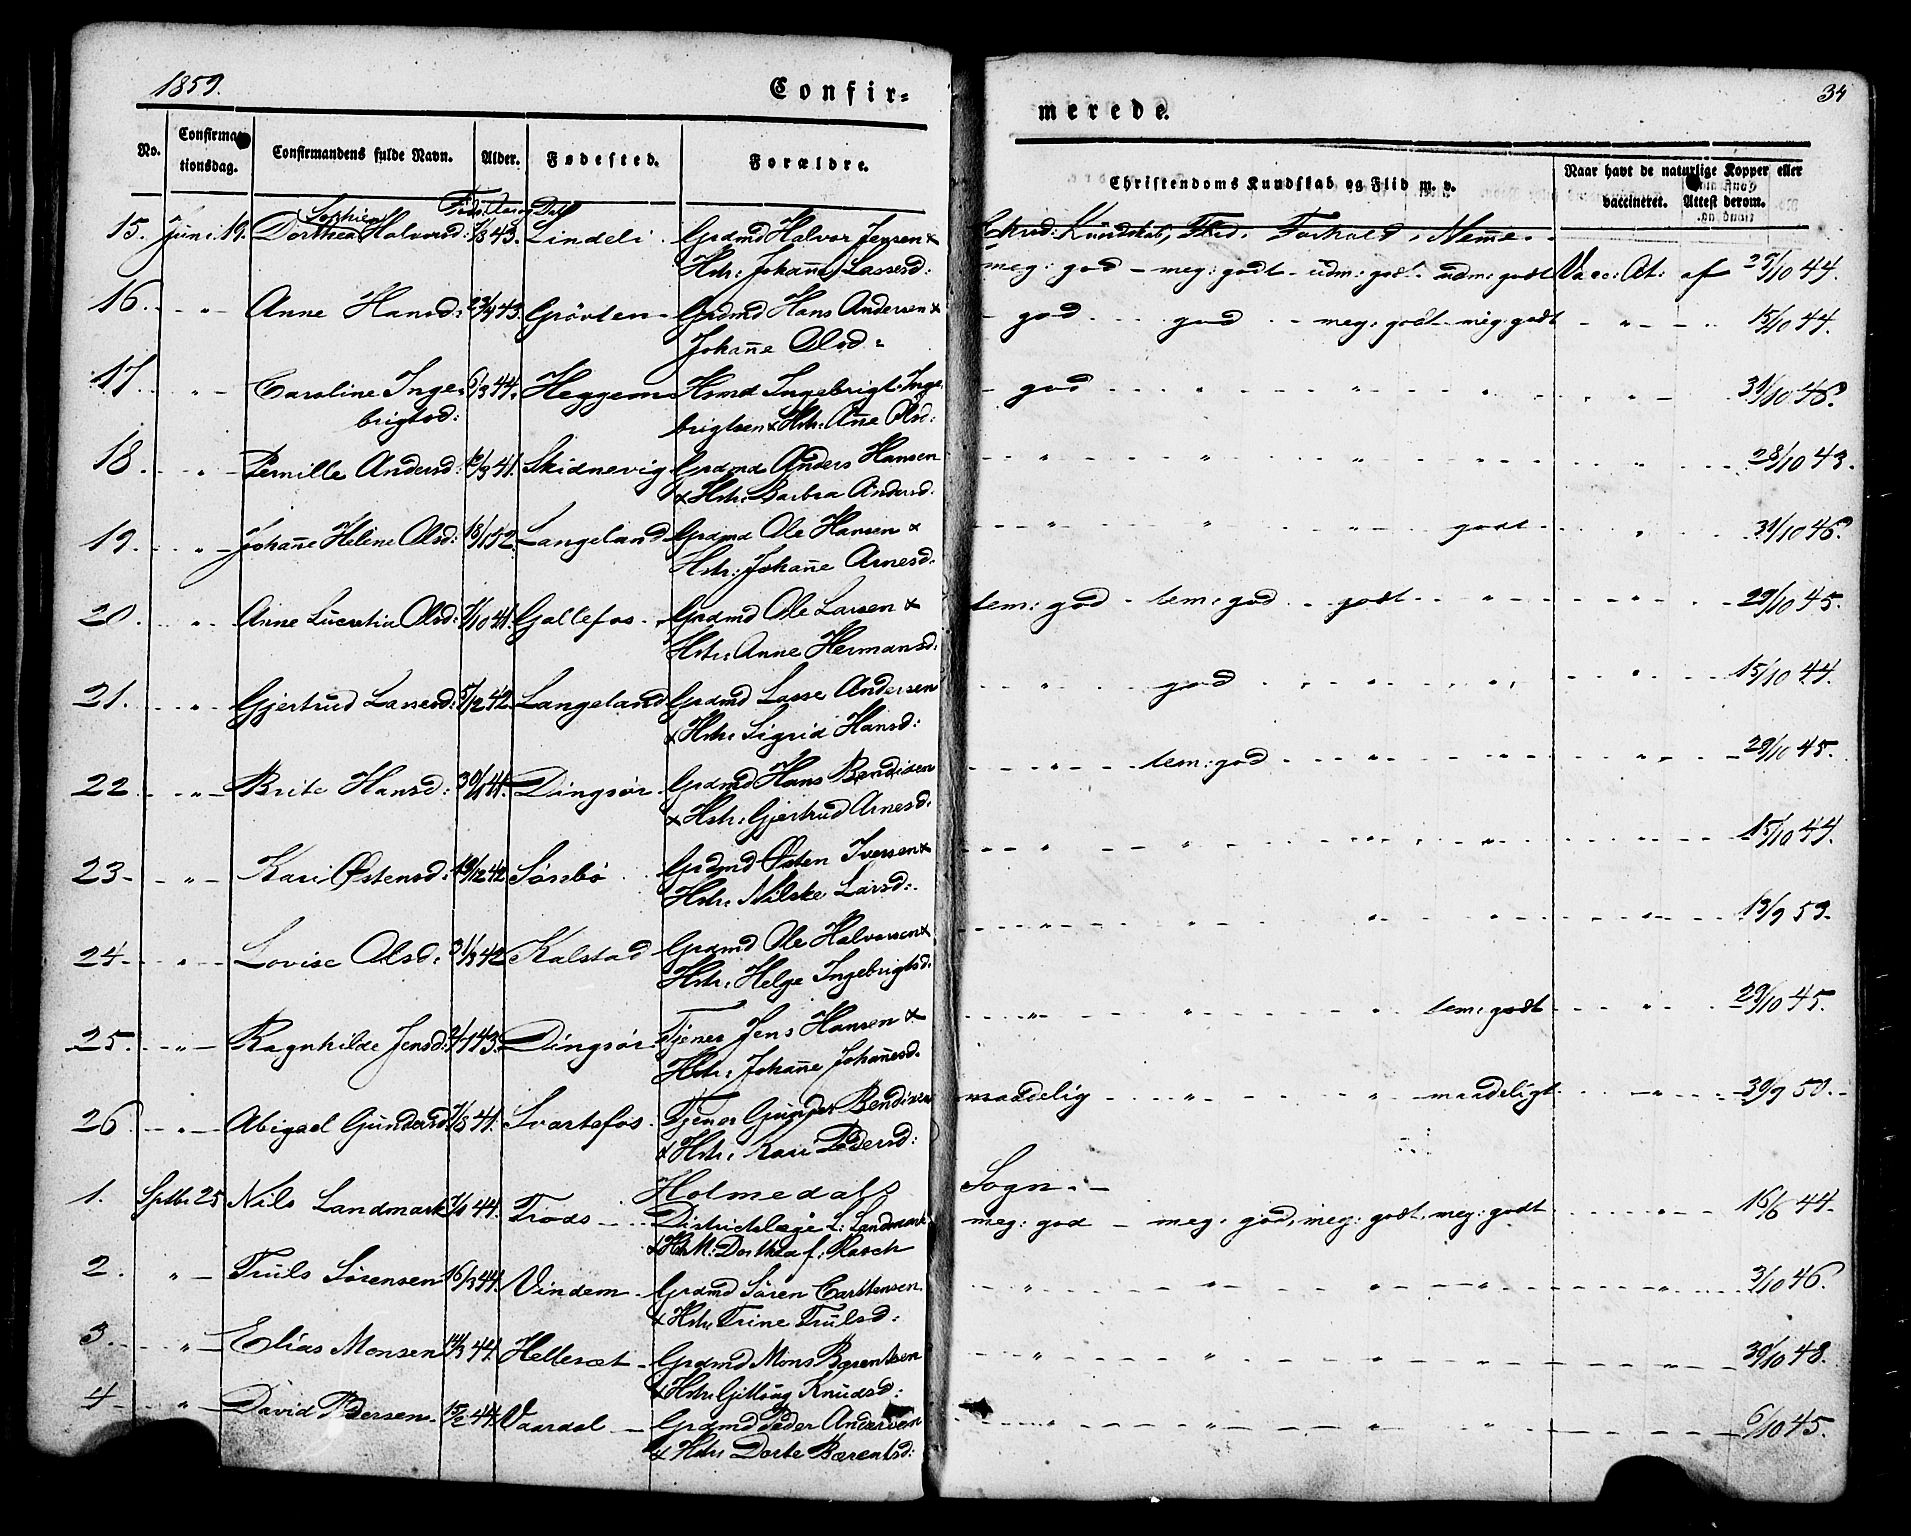 1859.
Confir=
merede.
34
No.
Confirma=
tionsdag.
Confirmandens fulde Navn.
Alder.
Fødested.
Forældre.
Christendoms Kundskab og Flid m. v.
Naar havt de naturlige Kopper eller
vaccineret. Attest derom.
Fød: Aar og Dat:
Chrd: Kundskab, Flid, Forhold, Nemme
15. Juni 19. Dorthea Sophie Halvorsd: 1/3 43. Lindeli Grdmd Halvor Jensen &
Hstr: Johañe Lassesd:
meg: god – meg: godt – udm: godt – udm: godt Vacc: At: af 29/10 44.
16. – „ – Anne Hansd: 23/4 43. Grövlen – Grdmd Hans Andersen &
Johañe Olsd:
– god – god – meg: godt – meg: godt – „ – 15/10 44.
17. – „ – Caroline Inge= 6/3 44. Heggem Hsmd Ingebrigt Inge
brigtsd: brigtsen & Hstr: Añe Olsd:
– god – „ – „ – „ – 31/10 46.
18. – „ – Pernille Andersd: 12/3 41. Skidnevig Grdmd Anders Hansen
& Hstr: Barbra Andersd.
– „ – „ – „ – „ – 28/10 43.
19. – „ – Johañe Heline Olsd: 18/1 52. Langeland Grdmd Ole Hansen &
Hstr: Johañe Arnesd.
– „ – „ – „ – godt – „ – 31/10 46.
20. – „ – Anne Lucretia Olsd: 7/10 41. Gallefos – Grdmd Ole Larsen &
Hstr: Anne Hermansd:
tem: god – tem: god – godt – „ – „ – 29/10 45.
21. – „ – Gjertrud Lassesd: 5/12 42. Langeland Grdmd Lasse Andersen
& Hstr: Sigrid Hansd:
– „ – god – „ – „ – „ – 15/10 44.
22. – „ – Brite Hansd: 30/1 41. Dingsör Grdmd Hans Bendixen
& Hstr: Gjertrud Arnesd.
– „ – tem: god – „ – „ – „ – 29/10 45.
23 – „ – Kari Østensd: 19/12 42 Sörebö Grdmd Østen Iversen &
Hstr: Nilske Larsd:
– „ – „ – „ – „ – 15/10 44.
24 – „ – Lovise Olsd: 31/3 42 Kalstad Grdmd Ole Halvorsen &
Hstr: Helge Ingebrigtsd:
– „ – „ – „ – „ – 13/9 59.
25. – „ – Ragnhilde Jensd: 2/1 43. Dingsör Tjener Jens Hansen &
Hstr: Johañe Johañesd.
– „ – „ – „ – tem: godt – „ – 29/10 45.
26. – „ – Abigael Gundersd 7/3 41. Svartefos Tjener Gunder Bendixen
& Hstr: Kari Pedersd:
maadelig – „ – „ – maadeligt – „ – 30/9 50.
Holmedals Sogn. –
1. Sptbr 25 Nils Landmark 7/1 44. Trods – Districtslæge L: Landmark
& H M: Dorthea f: Rasch
meg: god – meg: god, meg: godt, meg: godt – „ – 16/6 44.
2. „ – Truls Sörensen 16/3 44. Vindem – Grdmd Sören Carstensen
& Hstr Trine Trulsd:
– „ – „ – „ – „ – 3/10 46.
3. – „ – Elias Monsen 14/3 44. Hellesæt – Grdmd Mons Bærentsen
& Hstr: Gitlaug Knudsd:
– „ – „ – „ – „ – 30/10 48.
4 – „ – David Pedersen 15/2 44. Vaardal – Grdmd Peder Andersen
& Hstr Dorte Bærentsd:
– „ – „ – „ – 6/10 45.